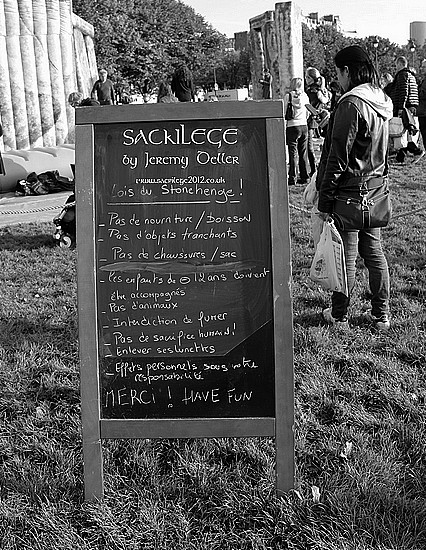 SACRILEGE
by Jeremy Deller
www.sacrilege2012.co.uk
Lois du Stonehenge !
- Pas de nourriture / boisson
- Pas d'objets tranchants
- Pas de chaussures / sac
- Les enfants de ⊖ 12 ans doivent
être accompagnés
- Pas d'animaux
- Interdiction de fumer
- Pas de sacrifice humain !
- Enlever ses lunettes
- Effets personnels sous votre
responsabilité
MERCI ! HAVE FUN